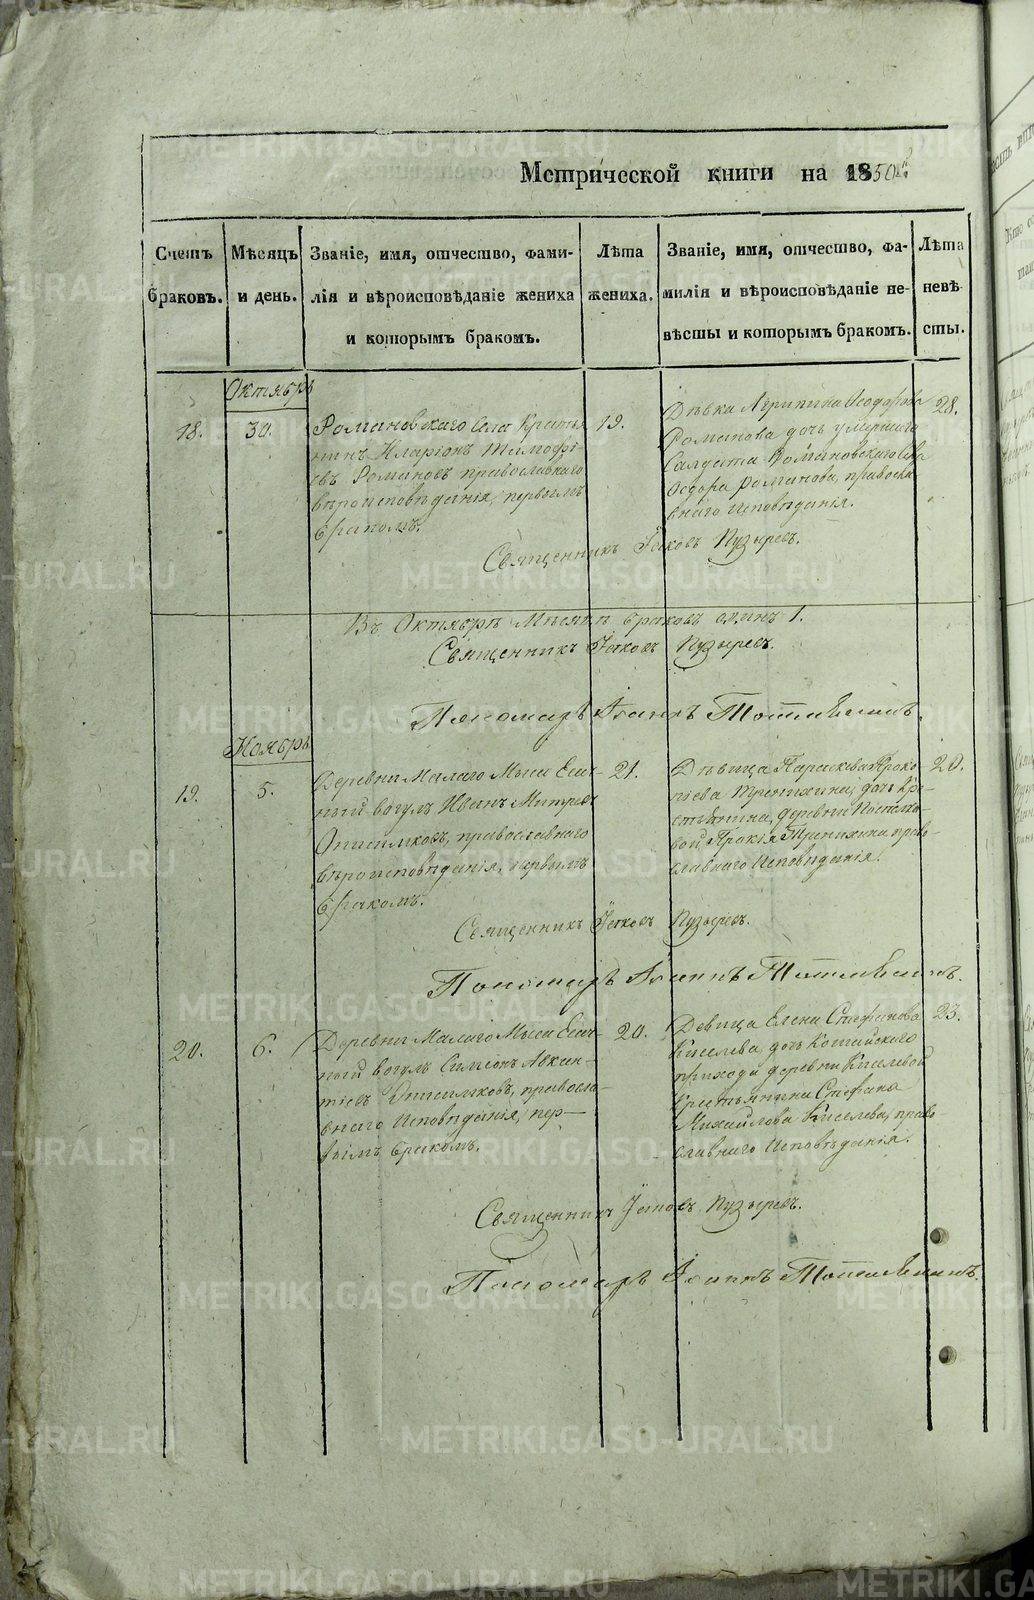 Метрической книги на 1850й
Счетъ браковъ.
Мѣсяцъ и день.
Званіе, имя, отчество, фами-
лія и вѣроисповѣданіе жениха
и которымъ бракомъ.
Лѣта
жениха.
Званіе, имя, отчество, фа-
милія и вѣроисповѣданіе не-
вѣсты и которымъ бракомъ.
Лѣта
невѣ
сты.
Октябрь
18.
30.
Романовскаго Села Крестья
нинъ Иларіонъ Тимофѣ
евъ Романовъ православнаго
вѣроисповѣданія, первымъ
бракомъ.
19.
Дѣвка Агрипина Ѳеодорова
Романова дочь умершаго
Салдата Романовскаго Села
Ѳедора Романова, правосла
внаго исповѣданія.
28.
Священникъ Іаковъ Пузыревъ.
Въ Октябрѣ Мѣсяцѣ браковъ одинъ 1.
Священникъ Іаковъ Пузыревъ.
Пономарь Іоаннъ
Ноябрь
19.
5.
Деревни Малаго Мыса Ясаш-
ный вогулъ Иванъ Митревъ
православнаго
вѣроисповѣданія, первымъ
бракомъ.
21.
Дѣвица Параскева Проко
піева дочь Кре-
стьянина, деревни
вой Прокія право-
славнаго Исповѣданія.
20.
Священникъ Іаковъ Пузыревъ.
Пономарь Іоаннъ
20.
6.
Деревни Малаго Мыса Ясаш-
ный вогулъ Симеонъ
правосла-
внаго Исповѣданія, пер-
вымъ бракомъ.
20.
Девица Елена Стефанова
Киселева, дочь Кошайского
прихода деревни Киселевой
Крестьянина Стефана
Михайлова Киселева, право
славнаго Исповѣданія.
23.
Священникъ Іаковъ Пузыревъ.
Пономарь Іоаннъ
METRIKI.GASO-URAL.RU